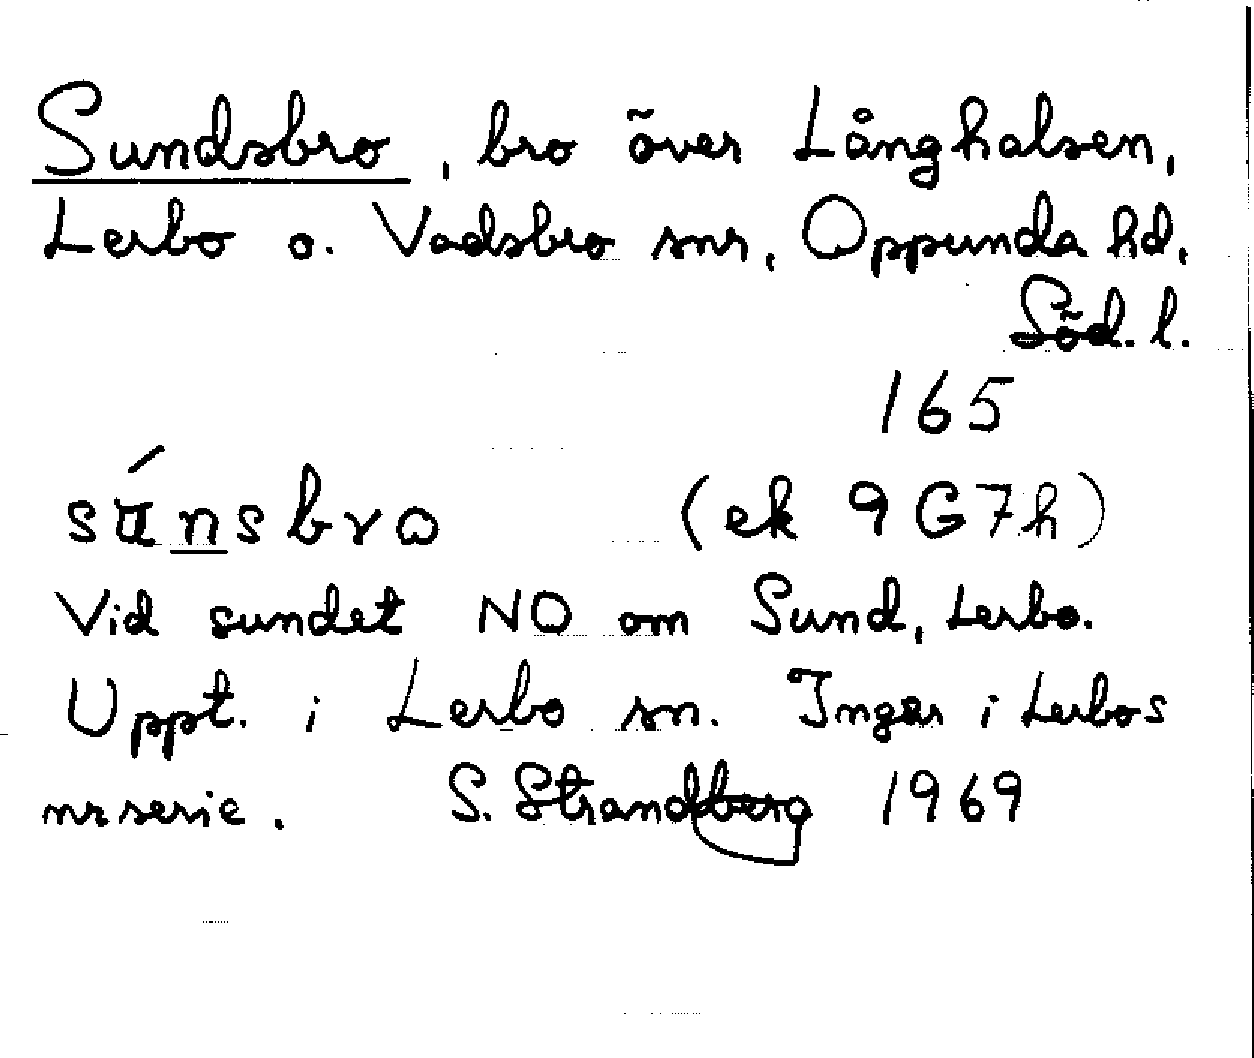 Sundsbro, bro över Långhalsen,
Lerbo o. Vadsbro snr, Oppunda hd,
Söd. l.
165
(ek 9G7h)
Vid sundet NO om Sund, Lerbo.
Uppt. i Lerbo sn. Ingår i Lerbos
nrserie. S. Strandberg 1969